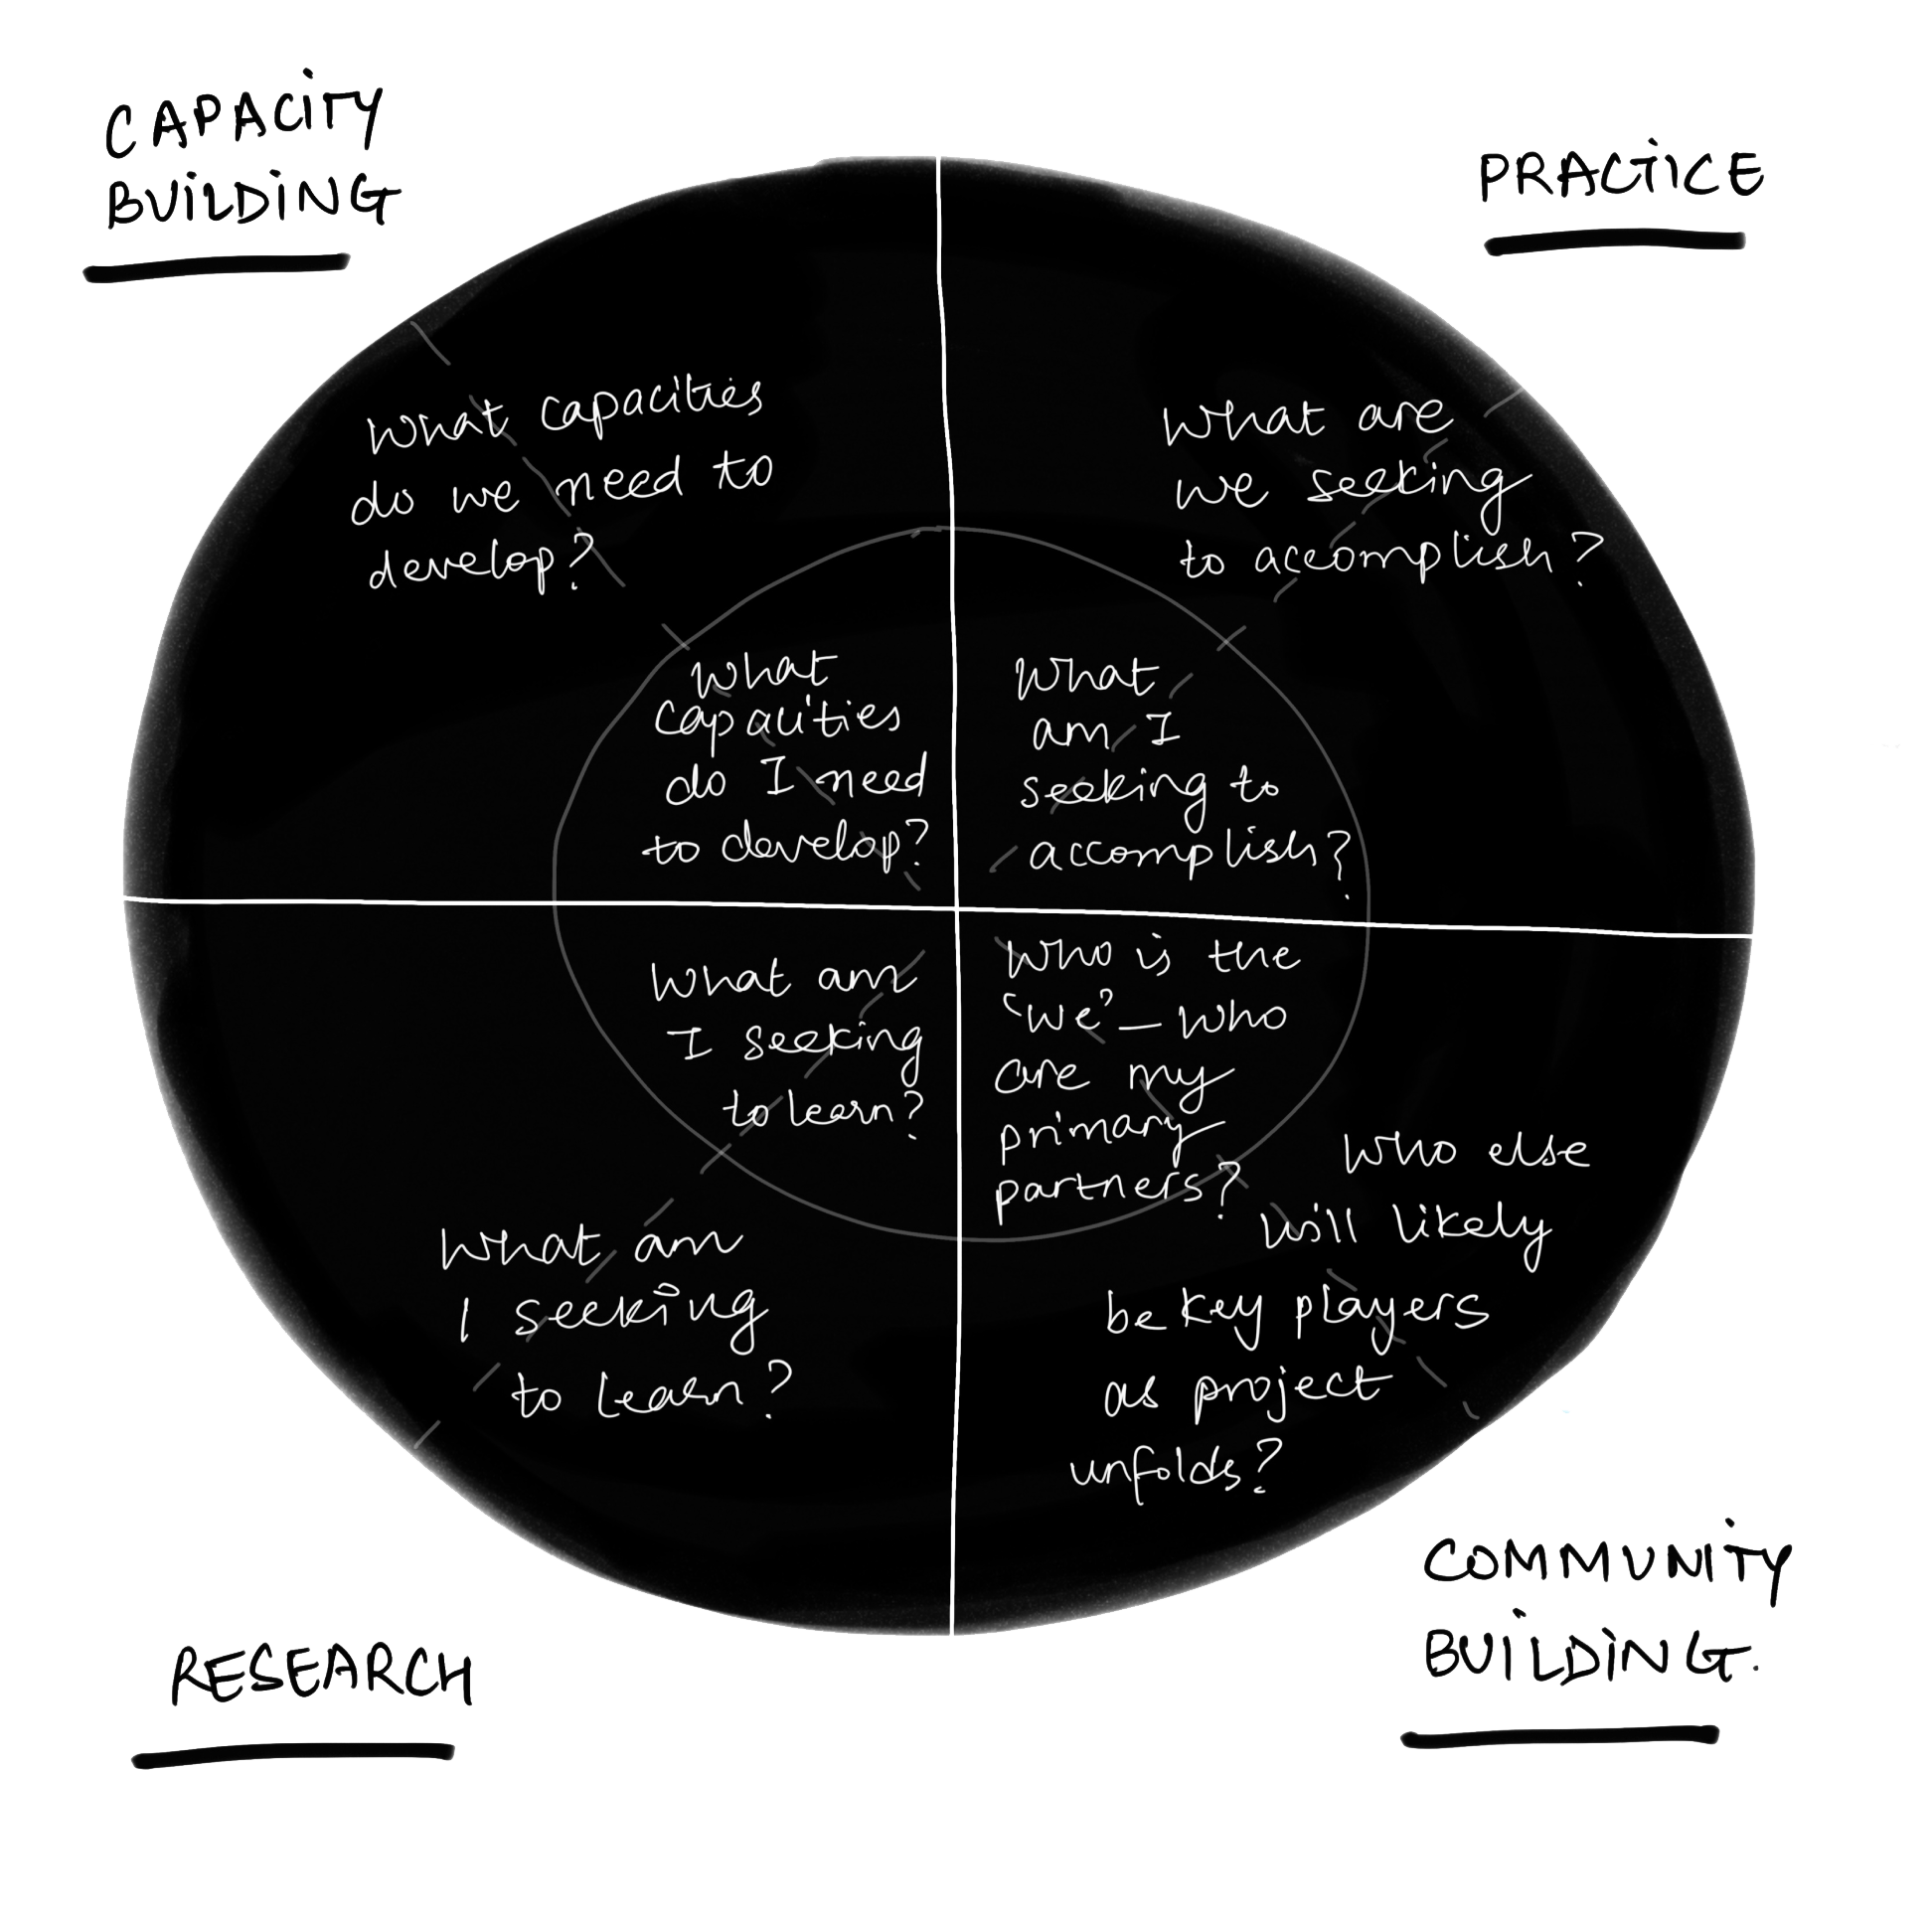 CAPACITY
BUILDING
PRACTICE
What capacities
do we need to
develop?
What are
we seeking
to accomplish?
What
capacities
do I need
to develop?
What
am I
seeking to
accomplish?
What am
I seeking
to learn?
Who is the
'we' – who
are my
primary
partners?
What am
I seeking
to learn?
Who else
will likely
be key players
as project
unfolds?
RESEARCH
COMMUNITY
BUILDING.